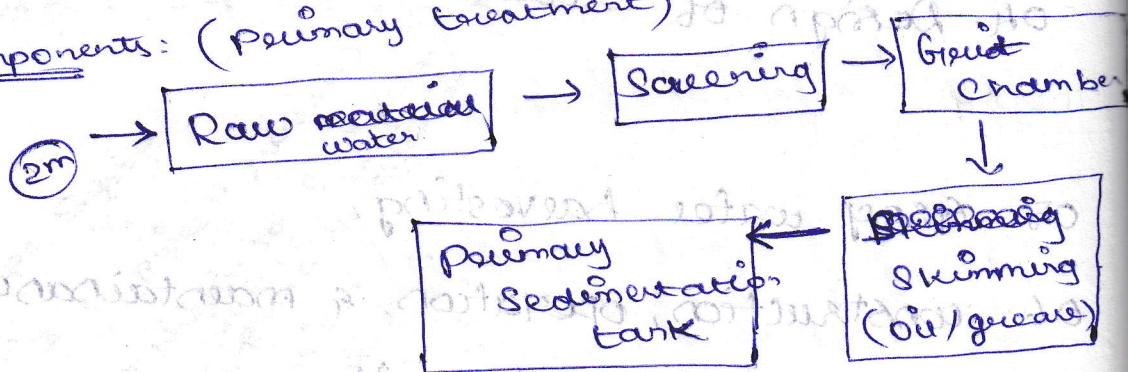 ponents: (Primary treatment)
2m
Raw water
Screening
Grit
Chamber
Skimming
(oil/grease)
Primary
Sedimentation
tank